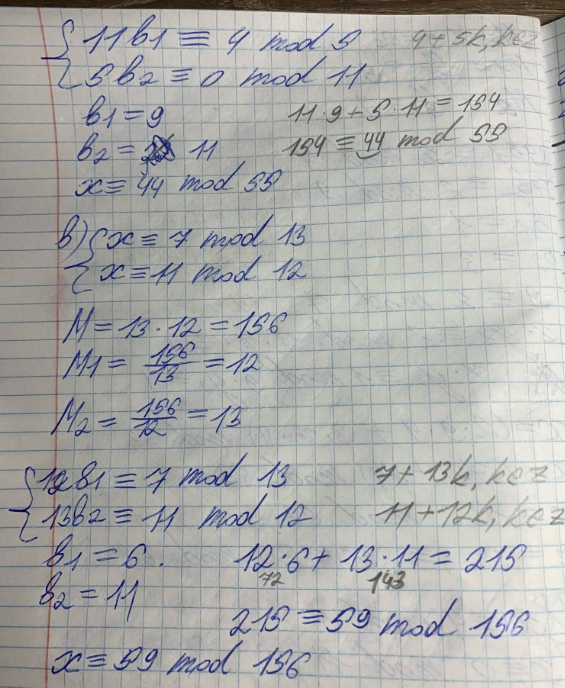 { 11b1 ≡ 4 mod 5    4 + 5k, k∈z
{ 5b2 ≡ 0 mod 11
b1 = 9    11·9 + 5·11 = 154
b2 = 11    154 ≡ 44 mod 55
x ≡ 44 mod 55
в) { x ≡ 7 mod 13
{ x ≡ 11 mod 12
M = 13·12 = 156
M1 = 156/13 = 12
M2 = 156/12 = 13
{ 12b1 ≡ 7 mod 13    7 + 13k, k∈z
{ 13b2 ≡ 11 mod 12    11 + 12k, k∈z
b1 = 6.    12·6 + 13·11 = 215
72    143
b2 = 11
215 ≡ 59 mod 156
x ≡ 59 mod 156